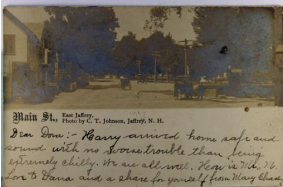 Main St., East Jaffrey.
Photo by C. T. Johnson, Jaffrey, N. H.
Dear Dom:- Harry arrived home safe and
sound with no worse trouble than being
extremely chilly. We are all well. How is
Love to Dana and a share for yourself from Mary